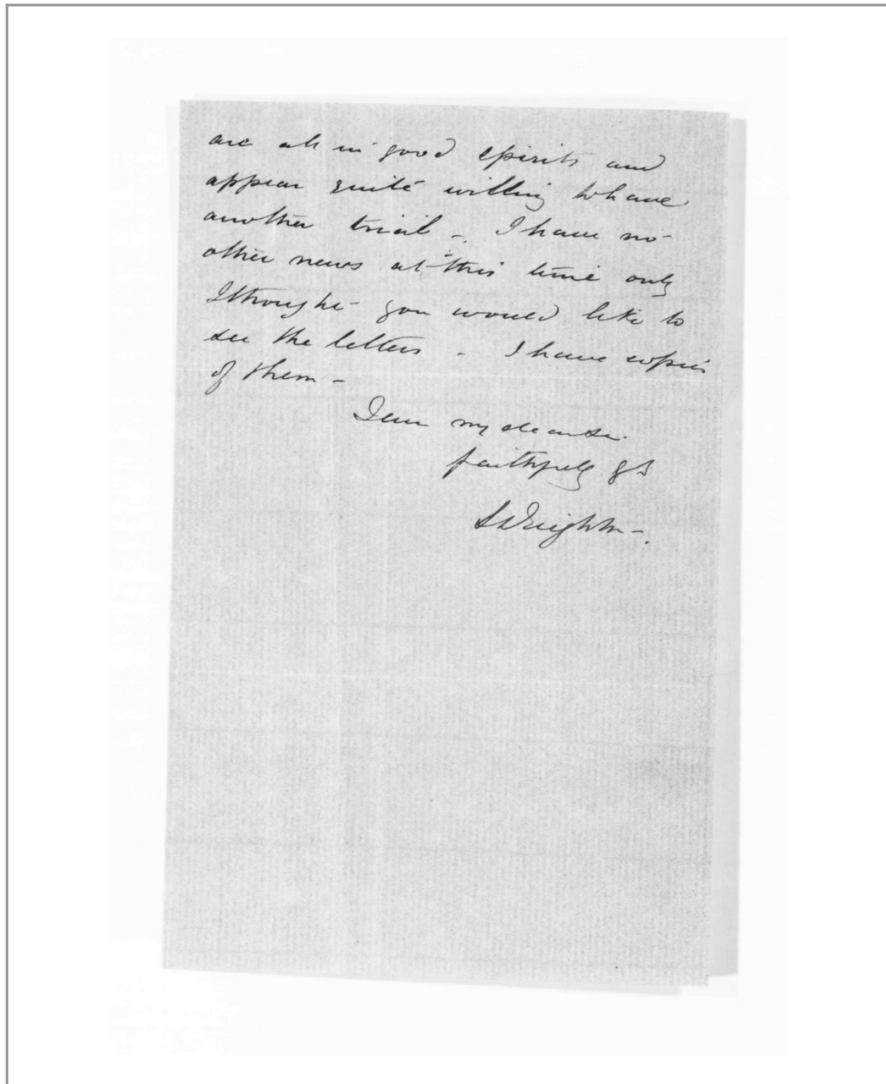 are all in good spirits and
appear quite willing to have
another trial - I have no
other news at this time only
I thought you would like to
see the letters - I have copies
of them -
I am my dear Sir
faithfully yrs